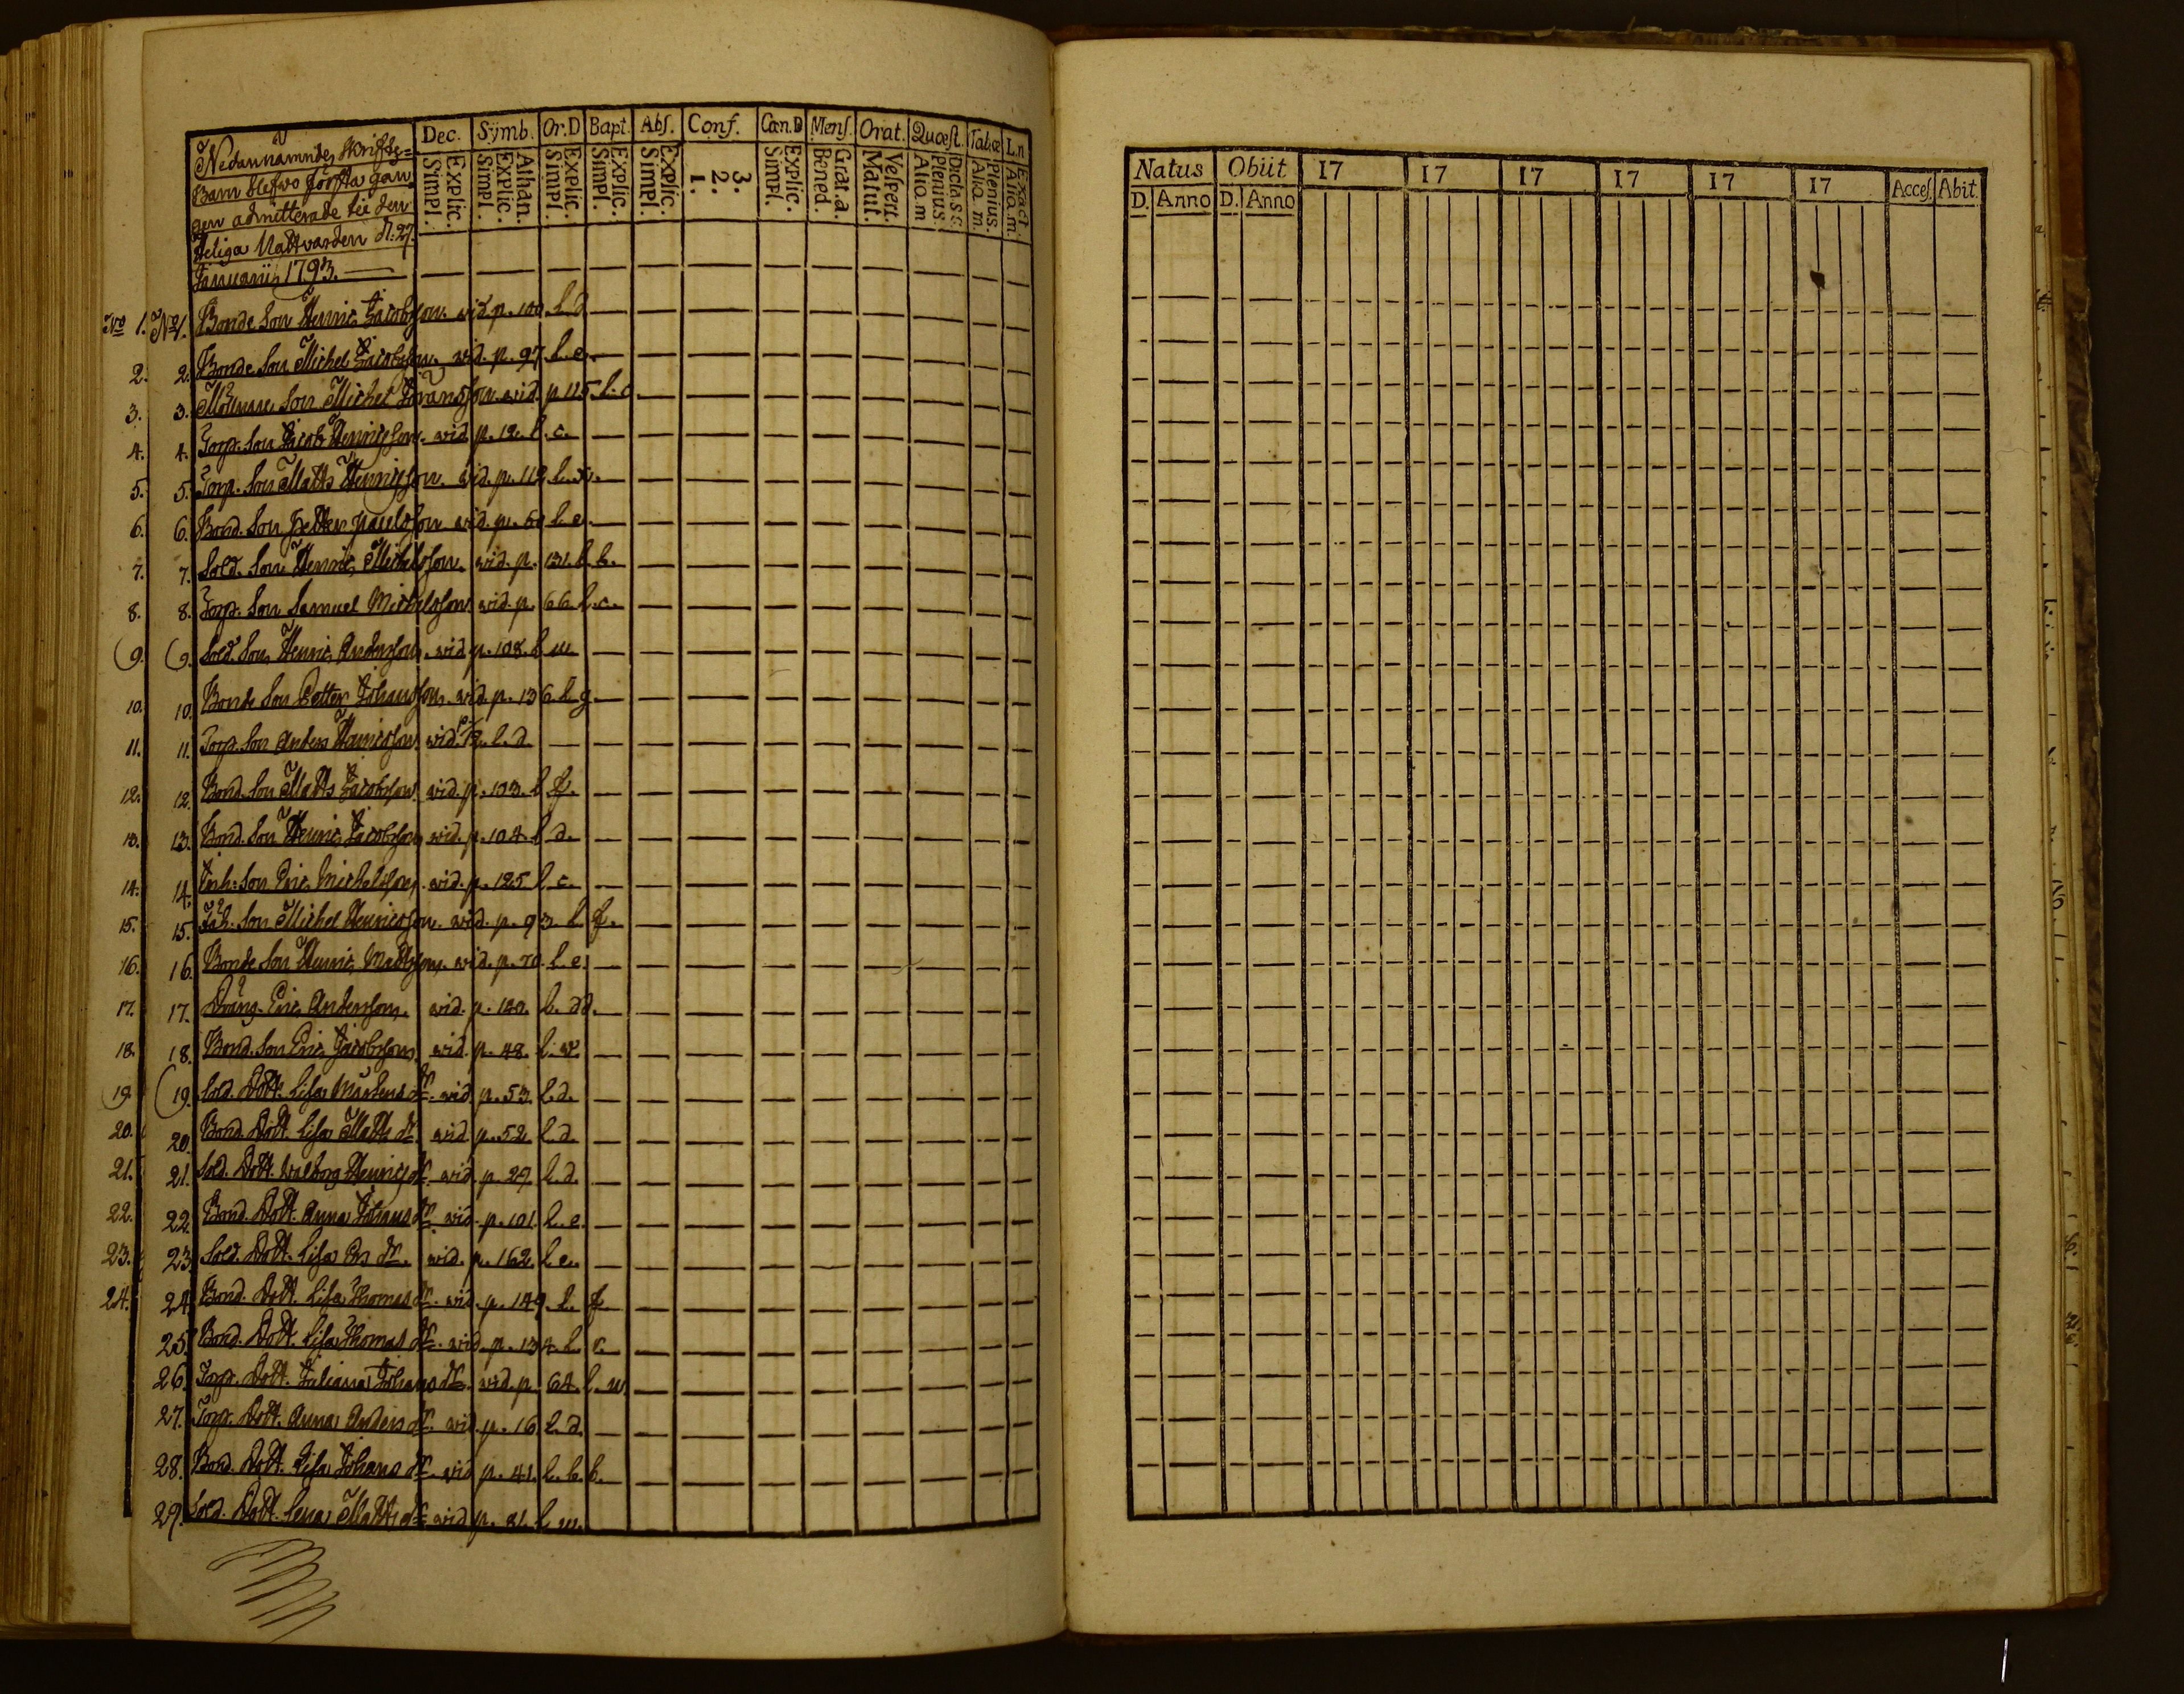 Nedannämnde Skrifte-
Barn blefwo första gån
gen admitterade til den
Heliga Nattvarden d. 27.
Januarii 1793.
Dec. Symb. Or.D Bapt. Abs. Conf. Cœn.D Mens. Orat. Quæst. Tab.œ L.n
Explic. Simpl. Athan. Explic. Simpl. Explic. Simpl. Explic. Simpl. Explic. Simpl. 3. 2. 1. Explic. Simpl. Grat.a. Bened. Vespert. Matut. Dicta S.C. Plenius. Aliq.m Plenius. Aliq. m. Exact. Aliq. m.
No 1. No 1. Bonde Son Henric Jacobsson. wid p. 100. l. d
2. 2. Bonde Son Michel Jacobsson. wid. p. 97. l. e.
3. 3. Son Michel Göransson. wid. p. 125. l. c
4. 4. Torp. Son Jacob Henricsson. wid p. 12. l. c.
5. 5. Torp. Son Matts Henricsson. wid. p. 112 l. x.
6. 6. Bond. Son Petter Paulsson wid. p. 50 l. e.
7. 7. Sold. Son Henric Michelsson. wid. p. 131. l. b.
8. 8. Torp. Son Samuel Michelsson wid. p. 66. l. c.
(9. (9. Sold. Son Henric Andersson. wid. p. 108. l. u.
10. 10. Bonde Son Petter Johansson. wid. p. 136. l. g.
11. 11. Torp. Son Anders Henricsson wid. p. 12. l. d.
12. 12. Bond. Son Matts Jacobsson. wid. p. 103. l. f.
13. 13. Bond. Son Henric Jacobsson wid. p. 104. l. d.
14. 14. Inh. Son Eric Michelsson. wid. p. 125 l. c.
15. 15. Inh. Son Michel Henricsson. wid. p. 93. l. f.
16. 16. Bonde Son Henric Mattsson. wid. p. 70. l. e.
17. 17. Dräng. Eric Andersson. wid. p. 120. l. dd.
18. 18. Bond. Son Eric Jacobsson wid. p. 48. l. w.
(19. (19. Sold. Dott. Lisa Mårtens dr. wid. p. 53. l. d.
20. 20. Bond. Dott. Lisa Matts dr. wid p. 52. l. d.
21. 21. Sold. Dott. Walborg Henrics dr. wid. p. 29. l. d.
22. 22. Bond. Dott. Anna Johans dr. wid. p. 101. l. e.
23. 23. Sold. Dott. Lisa Ers dr. wid. p. 162. l. e.
24. 24. Bond. Dott. Lisa Thomas dr. wid. p. 149. l. f.
25. Bond. Dott. Lisa Thomas dr. wid. p. 134. l. c.
26. Torp. Dott. Juliana Johans dr. wid. p. 64. l. u.
27. Torp. Dott. Anna Anders dr. wid. p. 16. l. d.
28. Bond. Dott. Lisa Johans dr. wid p. 41. l. b. b.
29. Sold. Dott. Lena Matts dr. wid. p. 81. l. m.
Natus Obiit 17 17 17 17 17 17 Acces. Abit.
D. Anno D. Anno